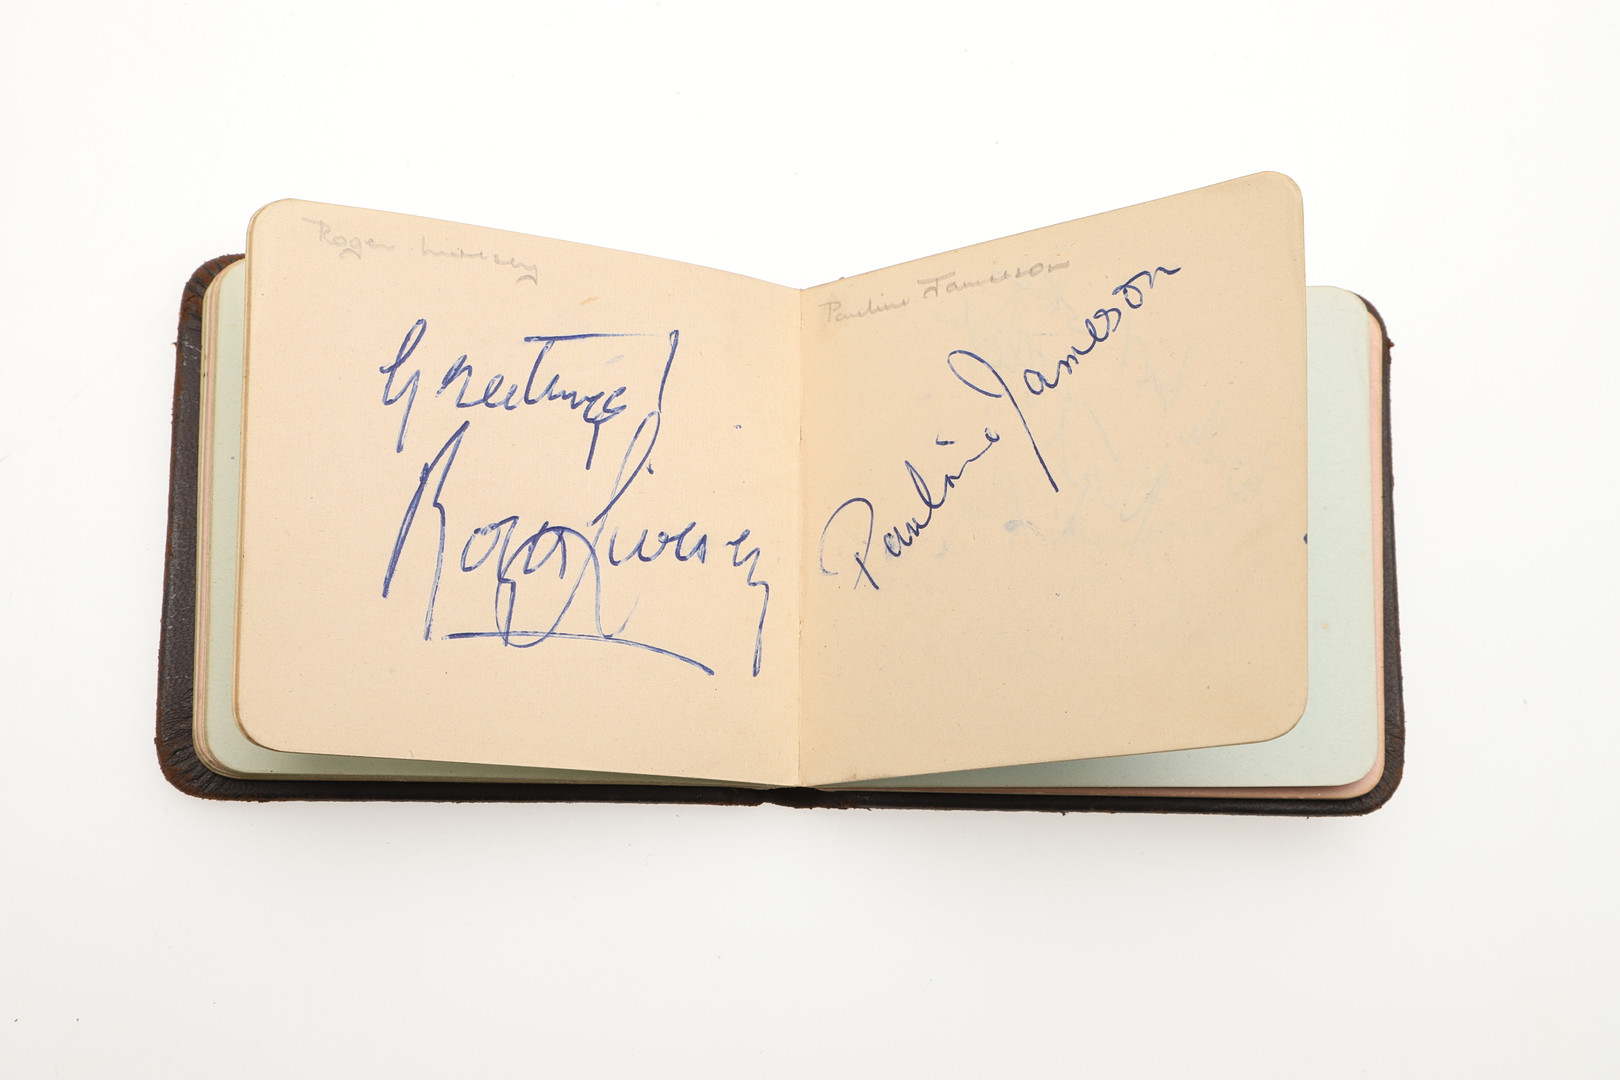 Roger Livesey
Greetings!
Roger Livesey
Pauline Jameson
Pauline Jameson